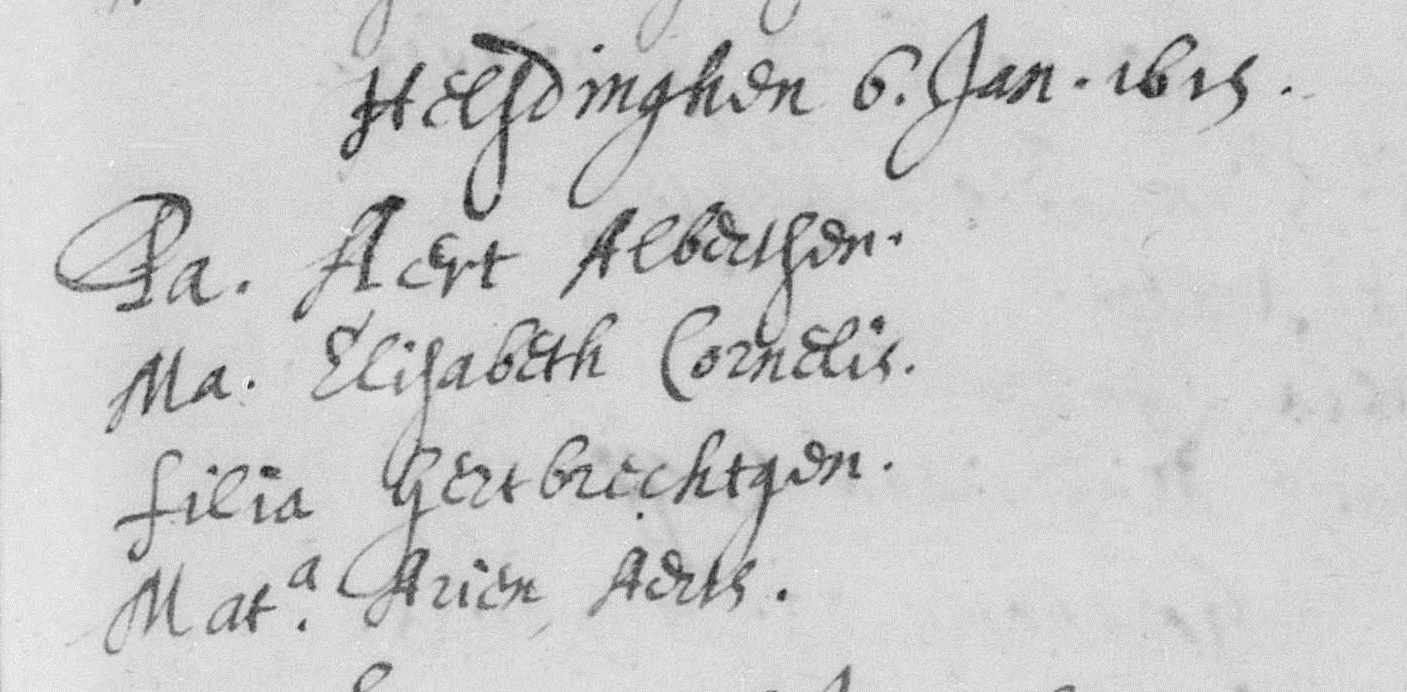 Helsdinghen 6. Jan. 1615.
Pa. Aert Alberthsen.
Ma. Elisabeth Cornelis.
filia Gertbrechtgen.
Mat.ª Arien Aerts.